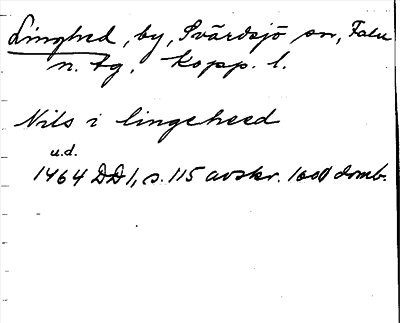 Linghed, by, Svärdsjö sn, Falu
n. tg, Kopp. l.
Nils i lingeheed
u.d.
1464 DD 1, s. 115 avskr. 1600 domb.